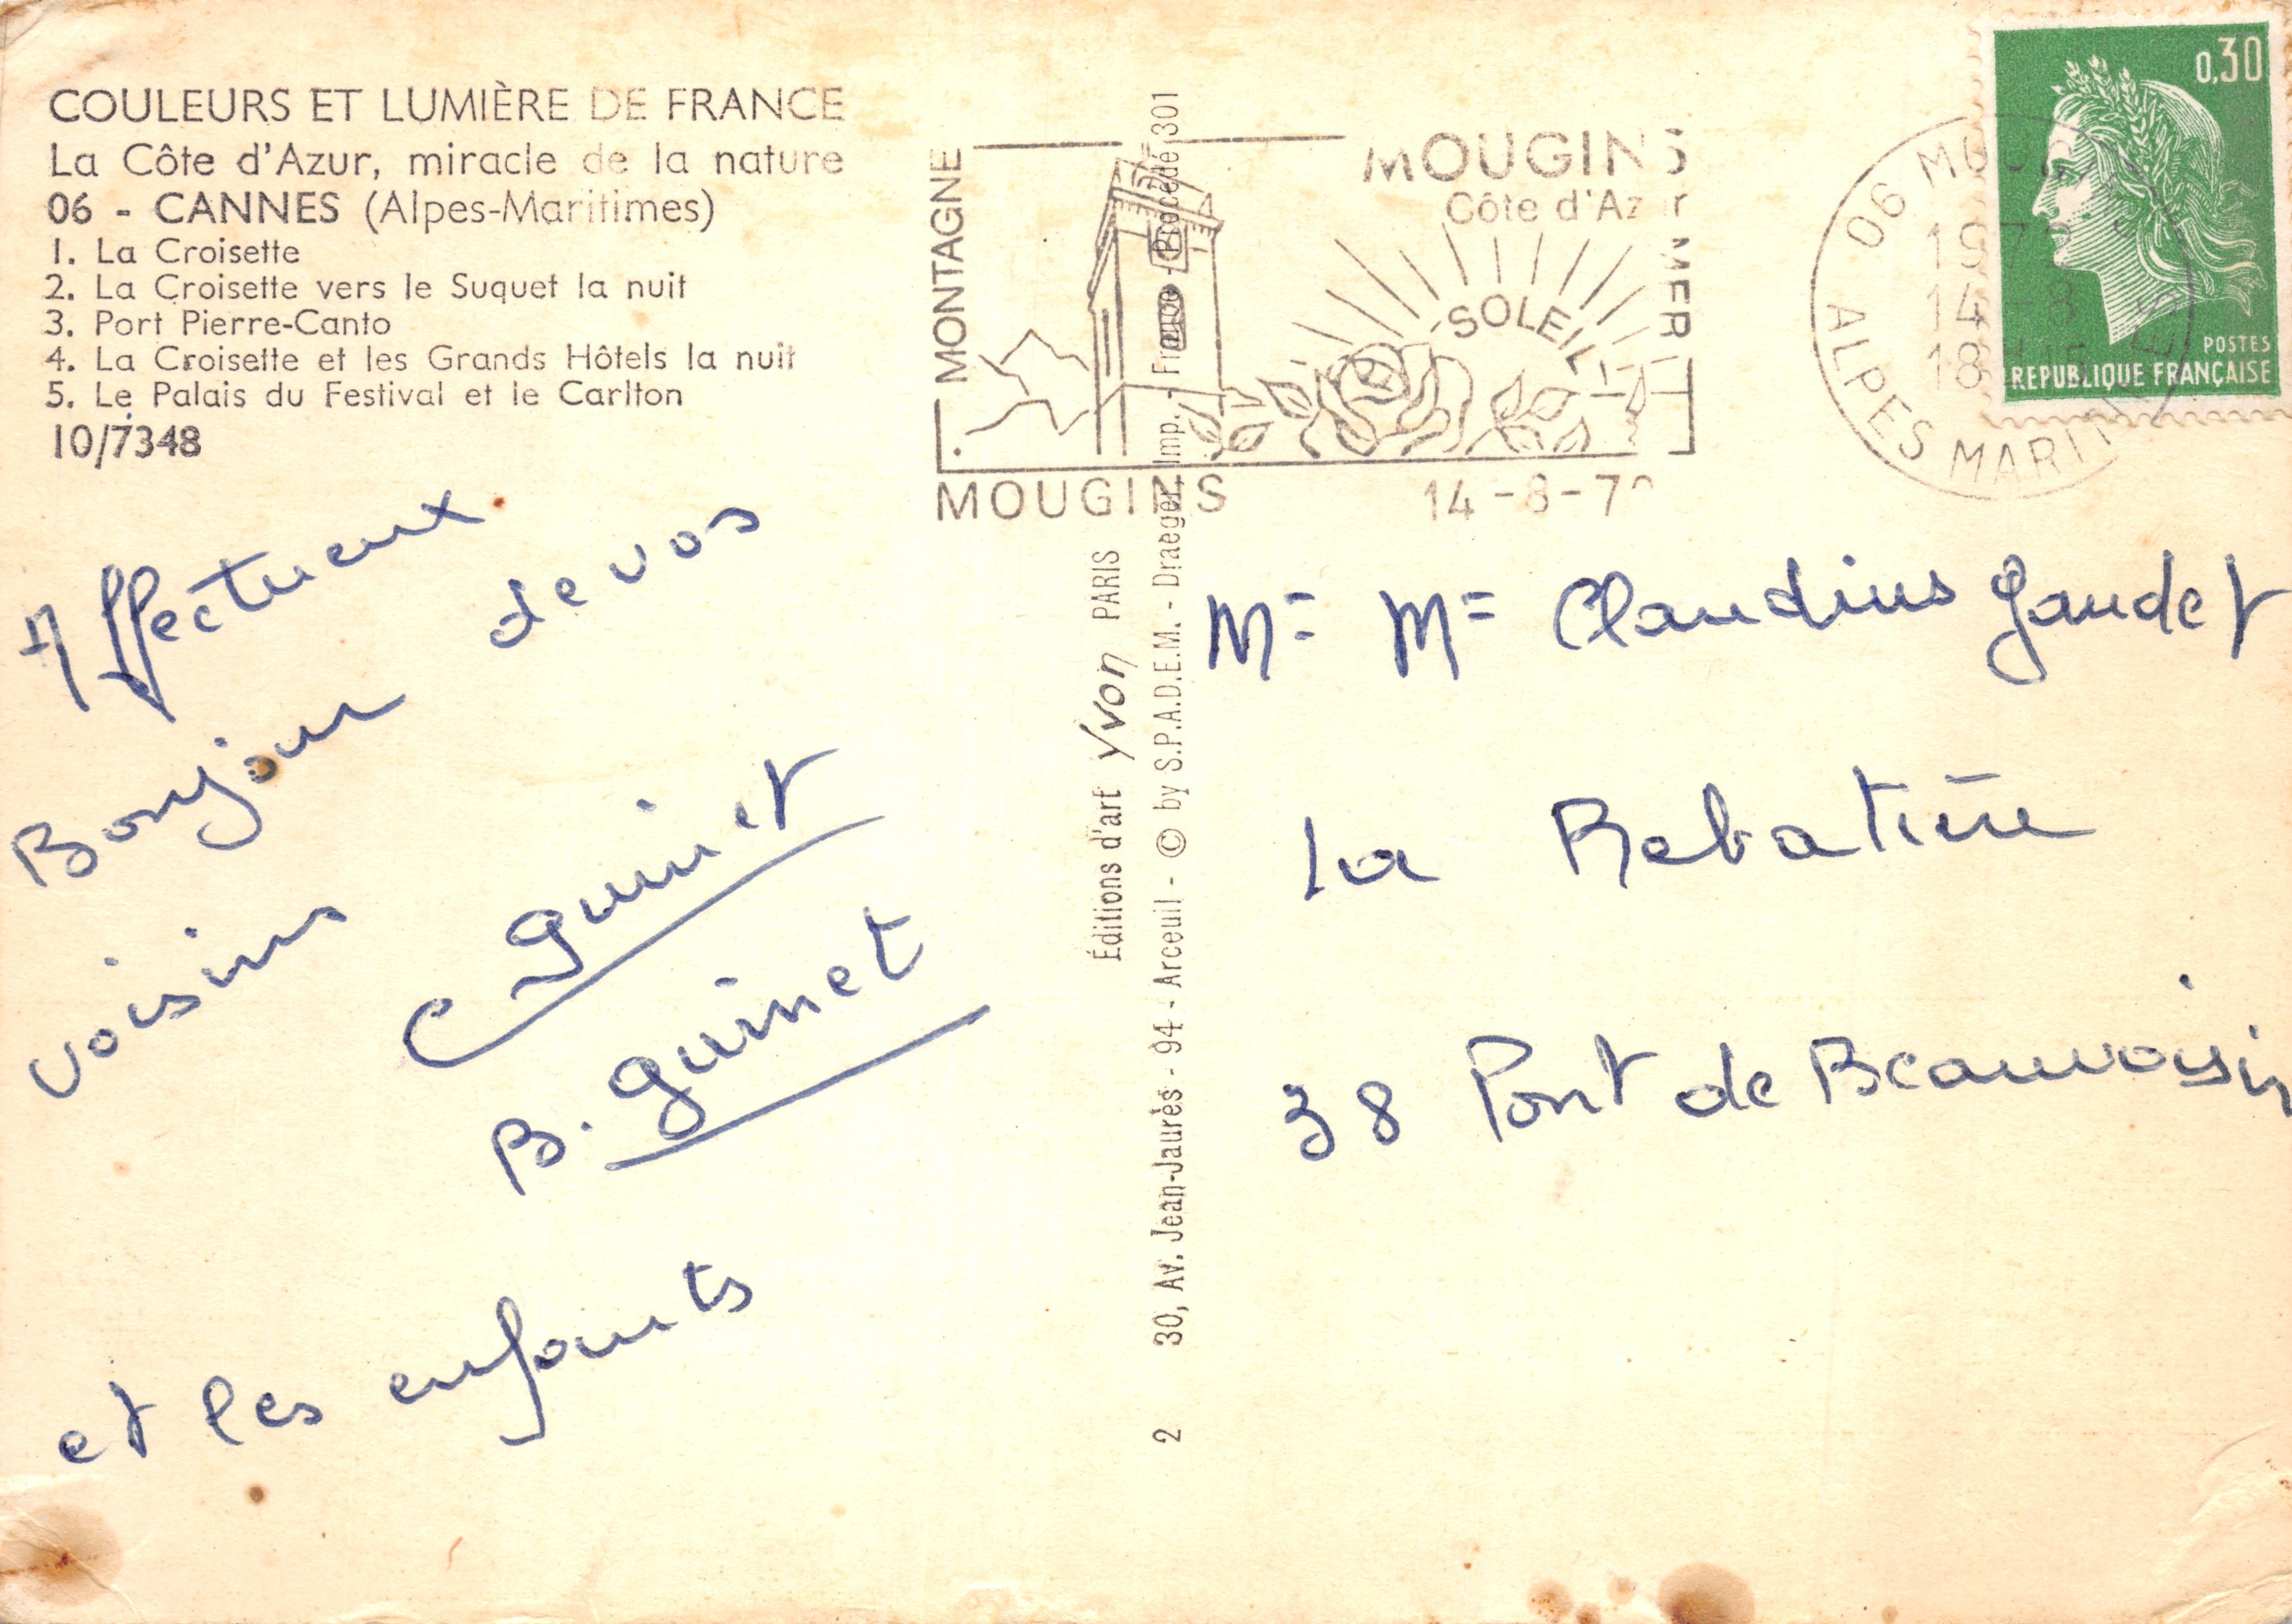 COULEURS ET LUMIÈRE DE FRANCE
La Côte d'Azur, miracle de la nature
06 - CANNES (Alpes-Maritimes)
1. La Croisette
2. La Croisette vers le Suquet la nuit
3. Port Pierre-Canto
4. La Croisette et les Grands Hôtels la nuit
5. Le Palais du Festival et le Carlton
10/7348
Affectueux
Bonjour de vos
voisins
C guinet
B. guinet
et les enfants
Éditions d'art Yvon PARIS
2 30, Av. Jean-Jaurès - 94 - Arceuil - © by S.P.A.D.E.M. - Draeger, Imp. - France - Procédé 301
MONTAGNE
MOUGINS
Côte d'Azur
MER
SOLEIL
MOUGINS
14-8-7
06 MOUGINS
14-8
18
ALPES MARITIMES
0,30
POSTES
REPUBLIQUE FRANÇAISE
M= M= Claudius Gaudet
La Rebatière
38 Pont de Beauvoisin